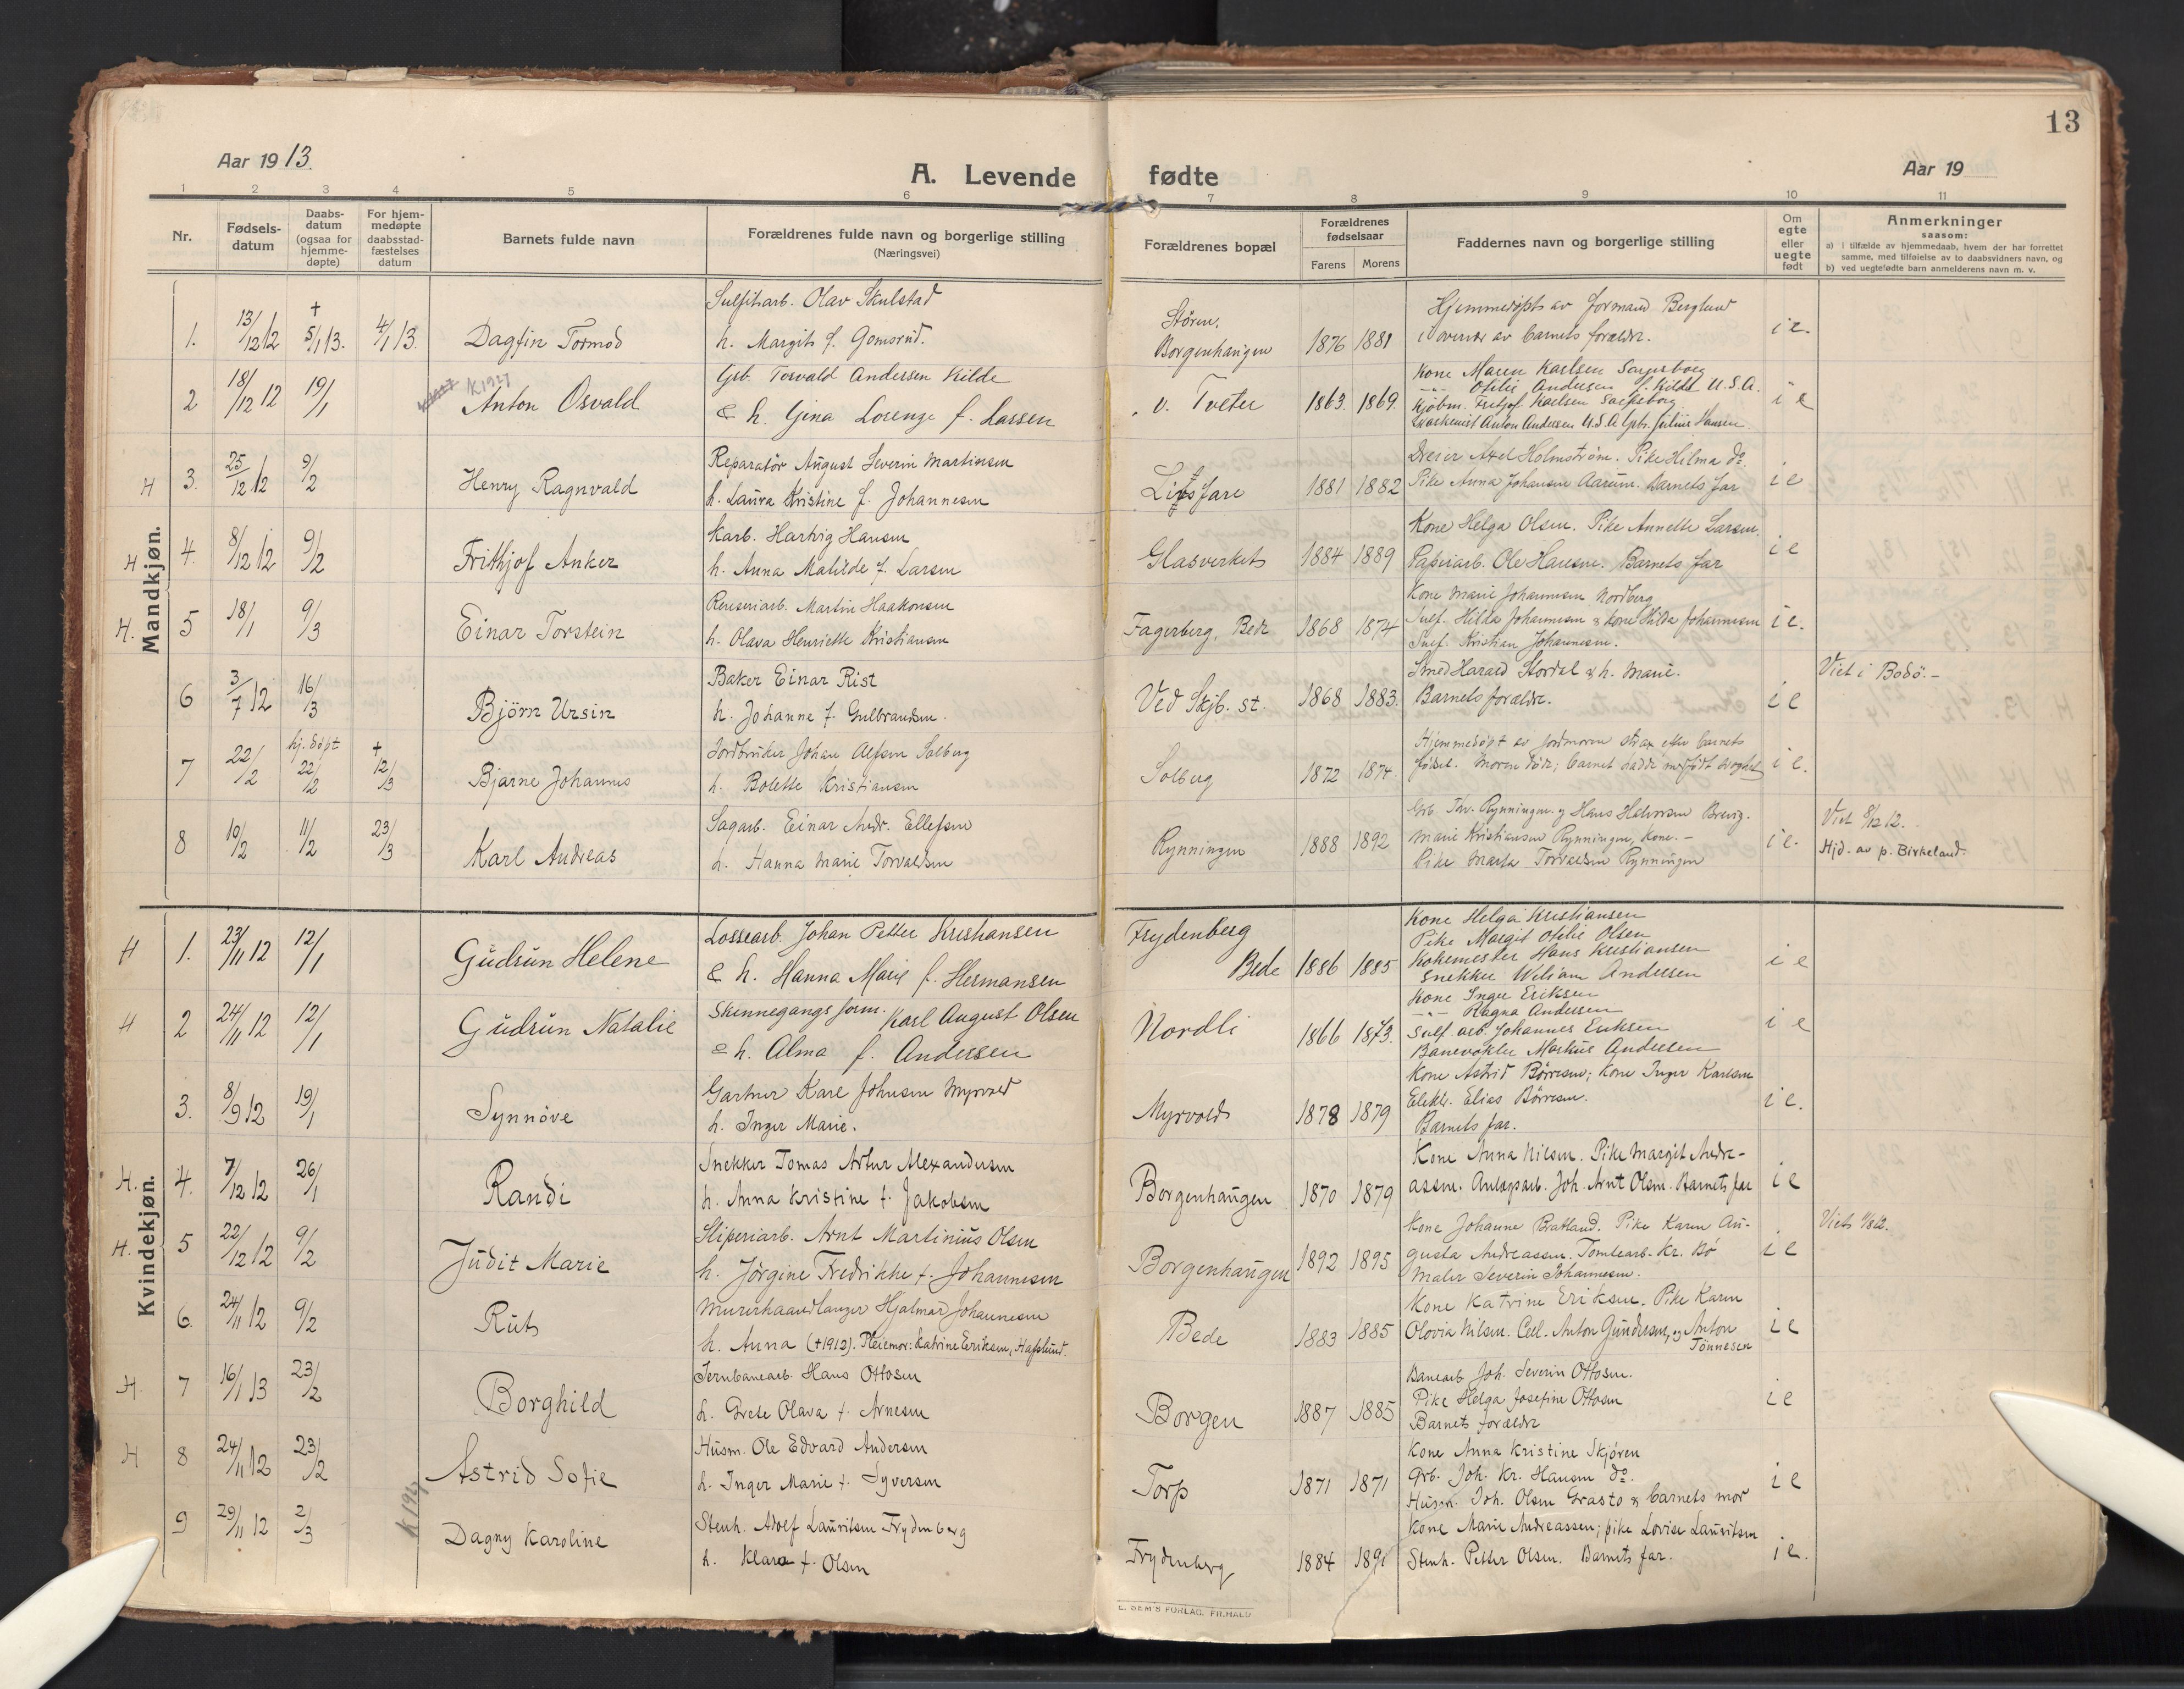 13
Aar 19 13.
A. Levende fødte
Aar 19
1 2 3 4 5 6 7 8 9 10 11
Nr.
Fødsels-
datum
Daabs-
datum
(ogsaa for
hjemme-
døpte)
For hjem-
medøpte
daabsstad-
fæstelses
datum
Barnets fulde navn
Forældrenes fulde navn og borgerlige stilling
(Næringsvei)
Forældrenes bopæl
Forældrenes
fødselsaar
Farens Morens
Faddernes navn og borgerlige stilling
Om
egte
eller
uegte
født
Anmerkninger
saasom:
a) i tilfælde av hjemmedaab, hvem der har forrettet
samme, med tilføielse av to daabsvidners navn, og
b) ved uegtefødte barn anmelderens navn m. v.
Mandkjøn.
1. 13/12 12 † 5/1 13. 4/1 13. Dagfin Tormod
Sulfitarb. Olav Skulstad
h. Margit f. Gomsrud.
Stören.
Borgenhaugen 1876 1881
Hjemmedøpts av Jormand Berglund
i overvær av barnets forældre.
i e.
2 18/12 12 19/1 K 1927 Anton Osvald
Grb. Torvald Andersen Kilde
& h. Gina Lorenze f. Larsen
. v. Tveter 1863. 1869.
Kone Maren Karlsen Sarpsborg
-"- Otilie Andersen f. Kilde U.S.A.
Kjøbm. Fritjof Karlsen Sarpsborg
Anton Andersen U.S.A. Grb. Julius Hansen
i e
H 3. 25/12 12 9/2 Henry Ragnvald
Reparatör August Severin Martinsen
h. Laura Kristine f. Johannesen
1881 1882
Dreier Axel Holmström. Pike Hilma do.
Pike Anna Johansen Aarum. Barnets far
i e
H 4. 8/12 12 9/2 Frithjof Anker
Karb. Hartvig Hansen
h. Anna Matilde f. Larsen
Glasverket 1884 1889
Kone Helga Olsen. Pike Annette Larsen.
Papirarb. Ole Hansen. Barnets far
i e
H. 5 18/1 9/3 Einar Torstein
Renseriarb. Martin Haakonsen
h. Olava Henriette Kristiansen
Fagerberg, Bede 1868 1874
Kone Marie Johannesen Nordberg
Sulf. Hilda Johannesen & kone Hilda Johannesen
Sulf. Kristian Johannesen.
i e.
6 3/7 12 16/3 Björn Ursin
Baker Einar Rist
h. Johanne f. Gulbrandsen.
Ved Skjb. st. 1868 1883.
Smed Harald Stordal & h. Marie.
Barnets forældre.
i e
Viet i Bodö.-
7 22/2 hj. döpt 22/2 † 12/3 Bjarne Johannes
Jordbruker Johan Alfsen Solberg
h. Bolette Kristiansen
Solberg 1872 1874.
Hjemmedöpt av jordmoren strax efter barnets
fødsel. Moren död; barnet hadde medfödt
i e.
8 10/2 11/2 23/3 Karl Andreas
Sagarb. Einar Andr. Ellefsen
h. Hanna Marie Torvaldsen
Rynningen 1888 1892
Grb. Thv. Rynningen og Hans Halvorsen Brevig.
Marie Kristiansen Rynningen, kone.-
Pike Marta Torvaldsen Rynningen
i e.
Viet 8/12 12.
Hjd. av p. Birkeland.
Kvindekjøn.
H 1. 23/11 12 12/1 Gudrun Helene
Lossearb. Johan Petter Kristiansen
& h. Hanna Marie f. Hermansen
Frydenberg
Bede 1886 1885
Kone Helga Kristiansen
Pike Margit Otilie Olsen
Kokemester Hans Kristiansen
Snekker Wiliam Andersen
i e
H 2 24/11 12 12/1 Gudrun Natalie
Skinnegangsform. Karl August Olsen
& h. Alma f. Andersen
Nordli 1866 1873.
Kone Inger Eriksen
-"- Ragna Andersen
Sulf. arb. Johannes Eriksen
Banevokter Markus Andersen
i e
3. 8/9 12 19/1 Synnöve
Gartner Karl Johnsen Myrvold
h. Inger Marie.
Myrvold 1878 1879
Kone Astrid Börresen; Kone Inger Karlsen
Elektr. Elias Börresen.
Barnets far.
i e.
H. 4. 7/12 12 26/1 Randi
Snekker Tomas Artur Alexandersen
h. Anna Kristine f. Jakobsen
Borgenhaugen 1870 1879
Kone Anna Nilsen. Pike Margit Andre-
assen. Anlægsarb. Joh. Arnt Olsen. Barnets far
i e
H. 5 22/12 12 9/2 Judit Marie
Sliperiarb. Arnt Martinius Olsen
h. Jörgine Fredrikke f. Johannesen
Borgenhaugen 1892 1895
Kone Johanne Bratland. Pike Karen Au-
gusta Andreassen. Tomtearb. Kr. Bö
Maler Severin Johannesen.
i e
6. 24/11 12 9/2 Rut
Murerhaandlanger Hjalmar Johannesen
h. Anna (†1912). Pleiemor: Katrine Eriksen, Hafslund.
Bede 1883 1885
Kone Katrine Eriksen. Pike Karen
Olovia Nilsen. Cell. Anton Gundersen, og Anton
Tönnesen
i e
H. 7 16/1 13 23/2 Borghild
Jernbanearb. Hans Ottosen
h. Grete Olava f. Arnesen
Borgen 1887 1885
Banearb. Joh. Severin Ottosen.
Pike Helga Josefine Ottosen
Barnets forældre
i e
H 8 24/11 12 23/2 Astrid Sofie
Husm. Ole Edvard Andersen
h. Inger Marie f. Syversen
Torp 1871 1871
Kone Anna Kristine Skjören
Grb. Joh. Kr. Hansen do.
Husm. Joh. Olsen Grasto & barnets mor
i e
9 29/11 12 2/3 K 1927 Dagny Karoline
Stenh. Adolf Lauritsen Frydenberg
h. Klara f. Olsen
Frydenberg 1884 1891
Kone Marie Andreassen; pike Lovise Lauritsen
Stenh. Petter Olsen. Barnets far.
i e.
E. SEM'S FORLAG, FR.HALD